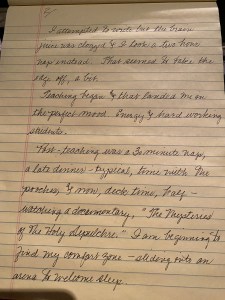 I attempted to write but the brain
juice was clogged & I took a two hour
nap instead. That seemed to take the
edge off, a bit.
Teaching began & thus landed me in
the perfect mood. Energy & hard working
students.
Post-teaching was a 30 minute nap,
a late dinner - typical, time with the
pooches, & now, deck time, half -
watching a documentary, "The Mysteries
of The Holy Sepulchre." I am beginning to
find my comfort zone - sliding into an
arena to welcome sleep.